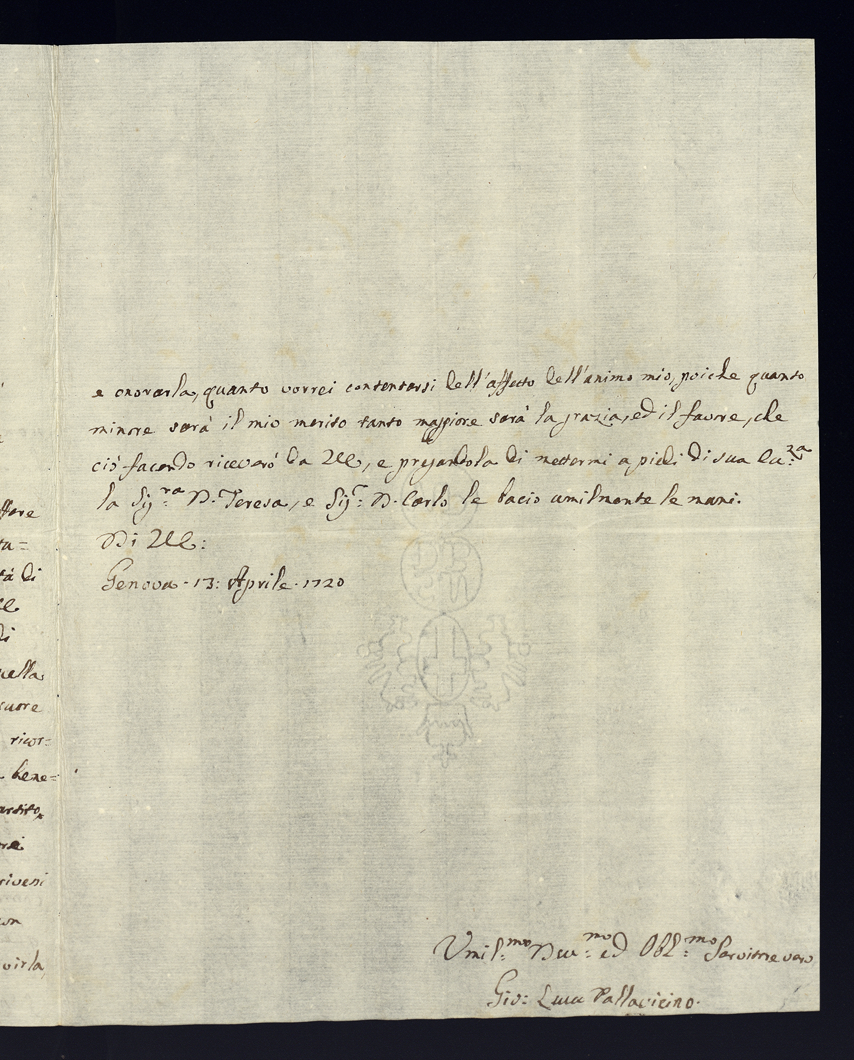 ffare
ta=
tá di
di
uella
cuore
ricor=
bene=
ardito,
rivevi
con
virla,
e onorarla, quanto vorrei contentarsi dell'affetto dell'animo mio, poiche quanto
minore sarà il mio merito tanto maggiore sarà la grazia, ed il favore, che
ciò facendo riceverò da VE, e pregandola di mettermi a piedi di sua
la Sig:ra D. Teresa, e Sig:r D. Carlo le bacio umilmente le mani.
Di VE:
Genova · 13: Aprile · 1720
Umil:mo Dev:mo ed Obl:mo Servitore vero
Gio: Luca Pallavicino.